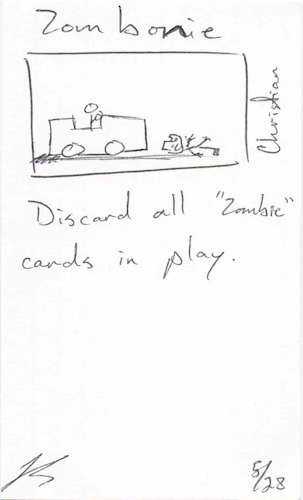 Zombonie
Christian
Discard all "Zombie"
cards in play.
5/28